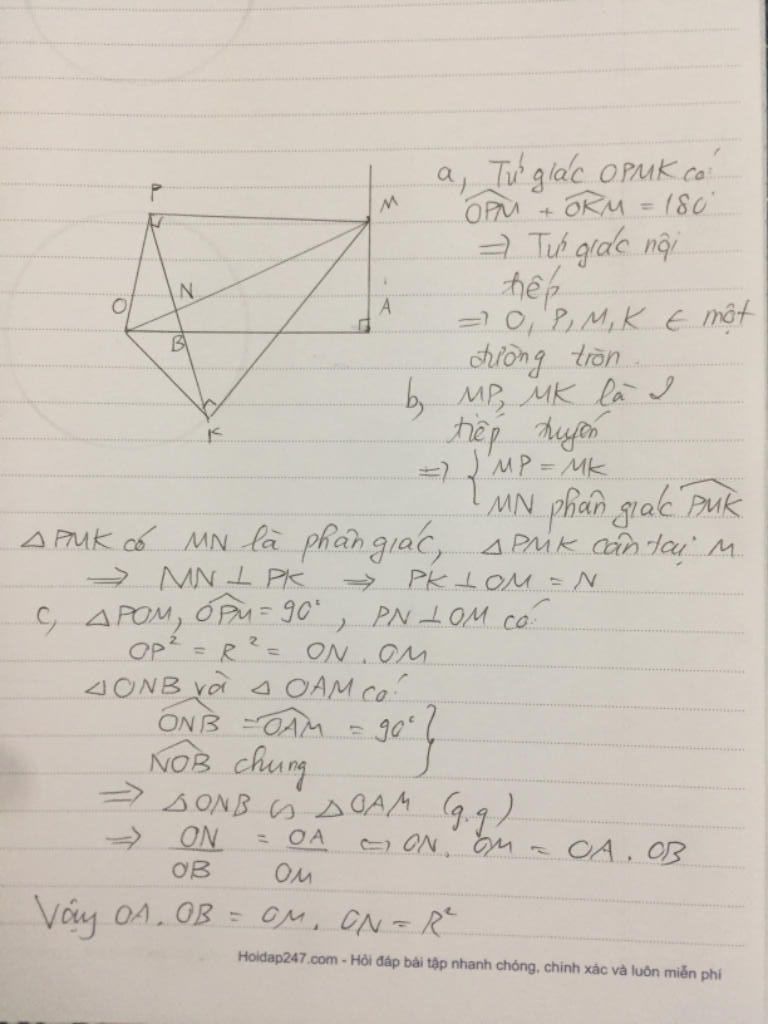 P
M
N
A
O
B
K
a, Tứ giác OPMK có:
OPM + OKM = 180°
=> Tứ giác nội
tiếp
=> O, P, M, K ∈ một
đường tròn.
b, MP, MK là 2
tiếp tuyến
=> { MP = MK
MN phân giác PMK
△PMK có MN là phân giác, △PMK cân tại M
=> MN ⊥ PK => PK ⊥ OM = N
c, △POM, OPM = 90°, PN ⊥ OM có:
OP² = R² = ON . OM
△ONB và △OAM có:
ONB = OAM = 90° }
NOB chung
=> △ONB ∽ △OAM (g.g)
=> ON/OB = OA/OM <=> ON. OM = OA. OB
Vậy OA. OB = OM. ON = R²
Hoidap247.com - Hỏi đáp bài tập nhanh chóng, chính xác và luôn miễn phí